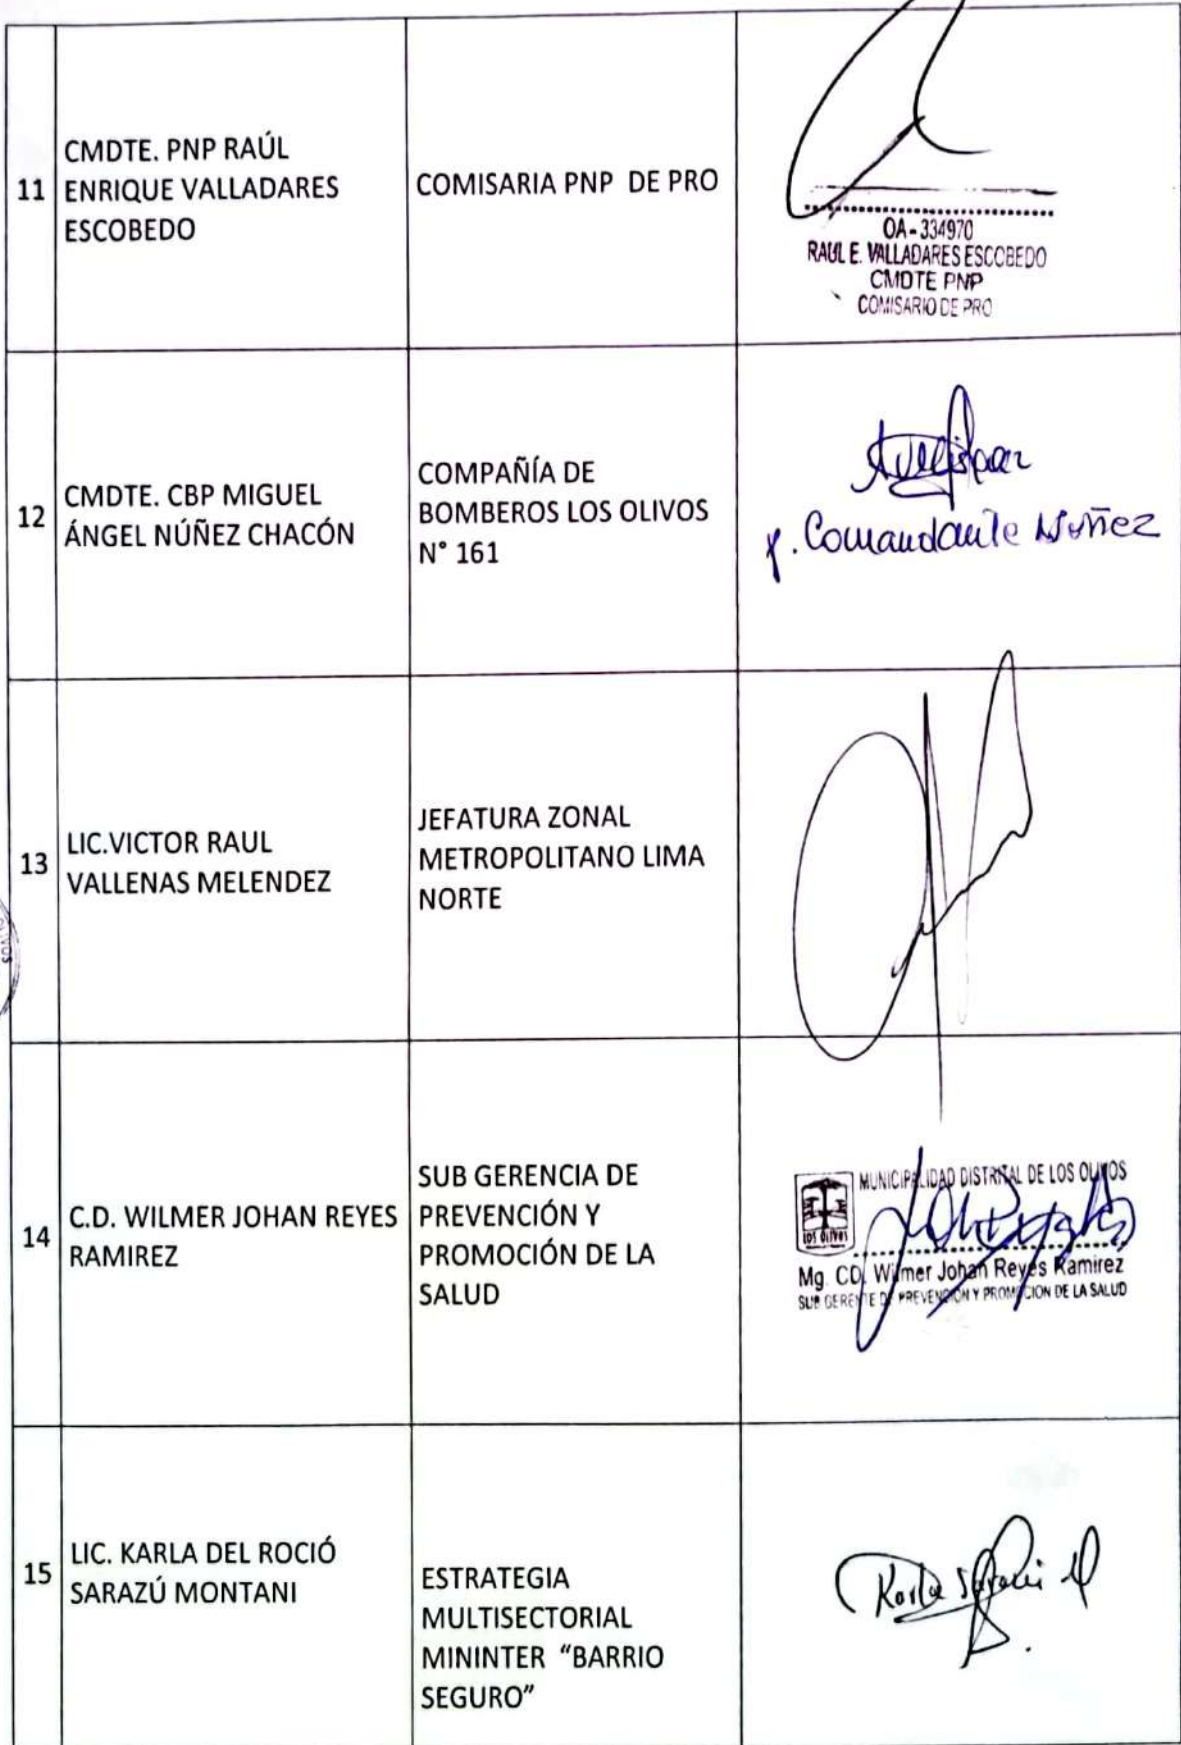 11
CMDTE. PNP RAÚL
ENRIQUE VALLADARES
ESCOBEDO
COMISARIA PNP DE PRO
OA-334970
RAUL E. VALLADARES ESCOBEDO
CMDTE PNP
COMISARIO DE PRO
12
CMDTE. CBP MIGUEL
ÁNGEL NÚÑEZ CHACÓN
COMPAÑÍA DE
BOMBEROS LOS OLIVOS
N° 161
p. Comandante Nuñez
13
LIC.VICTOR RAUL
VALLENAS MELENDEZ
JEFATURA ZONAL
METROPOLITANO LIMA
NORTE
14
C.D. WILMER JOHAN REYES
RAMIREZ
SUB GERENCIA DE
PREVENCIÓN Y
PROMOCIÓN DE LA
SALUD
MUNICIPALIDAD DISTRITAL DE LOS OLIVOS
LOS OLIVOS
Mg. CD. Wilmer Johan Reyes Ramirez
SUB GERENTE DE PREVENCION Y PROMOCION DE LA SALUD
15
LIC. KARLA DEL ROCIÓ
SARAZÚ MONTANI
ESTRATEGIA
MULTISECTORIAL
MININTER “BARRIO
SEGURO”